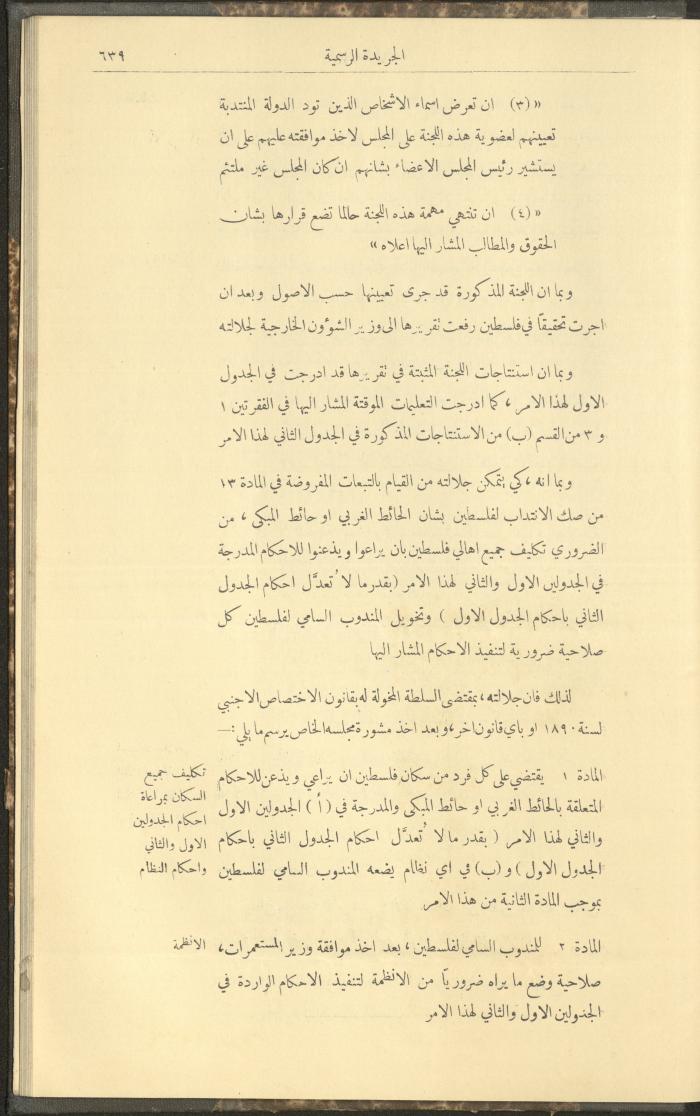 الجريدة الرسمية ٦٣٩
« (٣) ان تعرض اسماء الاشخاص الذين تود الدولة المنتدبة
تعيينهم لعضوية هذه اللجنة على المجلس لاخذ موافقته عليهم على ان
يستشير رئيس المجلس الاعضاء بشانهم ان كان المجلس غير ملتئم
« (٤) ان تنتهي مهمة هذه اللجنة حالما تضع قرارها بشان
الحقوق والمطالب المشار اليها اعلاه »
وبما ان اللجنة المذكورة قد جرى تعيينها حسب الاصول وبعد ان
اجرت تحقيقاً في فلسطين رفعت تقريرها الى وزير الشوءون الخارجية لجلالته
وبما ان استنتاجات اللجنة المثبتة في تقريرها قد ادرجت في الجدول
الاول لهذا الامر ، كما ادرجت التعليمات الموقتة المشار اليها في الفقرتين ١
و ٣ من القسم (ب) من الاستنتاجات المذكورة في الجدول الثاني لهذا الامر
وبما انه ، كي يتمكن جلالته من القيام بالتبعات المفروضة في المادة ١٣
من صك الانتداب لفلسطين بشان الحائط الغربي او حائط المبكى ، من
الضروري تكليف جميع اهالي فلسطين بان يراعوا ويذعنوا للاحكام المدرجة
في الجدولين الاول والثاني لهذا الامر (بقدر ما لا تُعدَّل احكام الجدول
الثاني باحكام الجدول الاول ) وتخويل المندوب السامي لفلسطين كل
صلاحية ضرورية لتنفيذ الاحكام المشار اليها
لذلك فان جلالته ، بمقتضى السلطة المخولة له بقانون الاختصاص الاجنبي
لسنة ١٨٩٠ او باي قانون اخر ، وبعد اخذ مشورة مجلسه الخاص يرسم ما يلي :—
المادة ١ يقتضي على كل فرد من سكان فلسطين ان يراعي ويذعن للاحكام
المتعلقة بالحائط الغربي او حائط المبكى والمدرجة في (أ) الجدولين الاول
والثاني لهذا الامر ( بقدر ما لا تُعدَّل احكام الجدول الثاني باحكام
الجدول الاول ) و (ب) في اي نظام يضعه المندوب السامي لفلسطين
بموجب المادة الثانية من هذا الامر
تكليف جميع
السكان بمراعاة
احكام الجدولين
الاول والثاني
واحكام النظام
المادة ٢ للمندوب السامي لفلسطين ، بعد اخذ موافقة وزير المستعمرات ،
صلاحية وضع ما يراه ضرورياً من الانظمة لتنفيذ الاحكام الواردة في
الجدولين الاول والثاني لهذا الامر
الانظمة